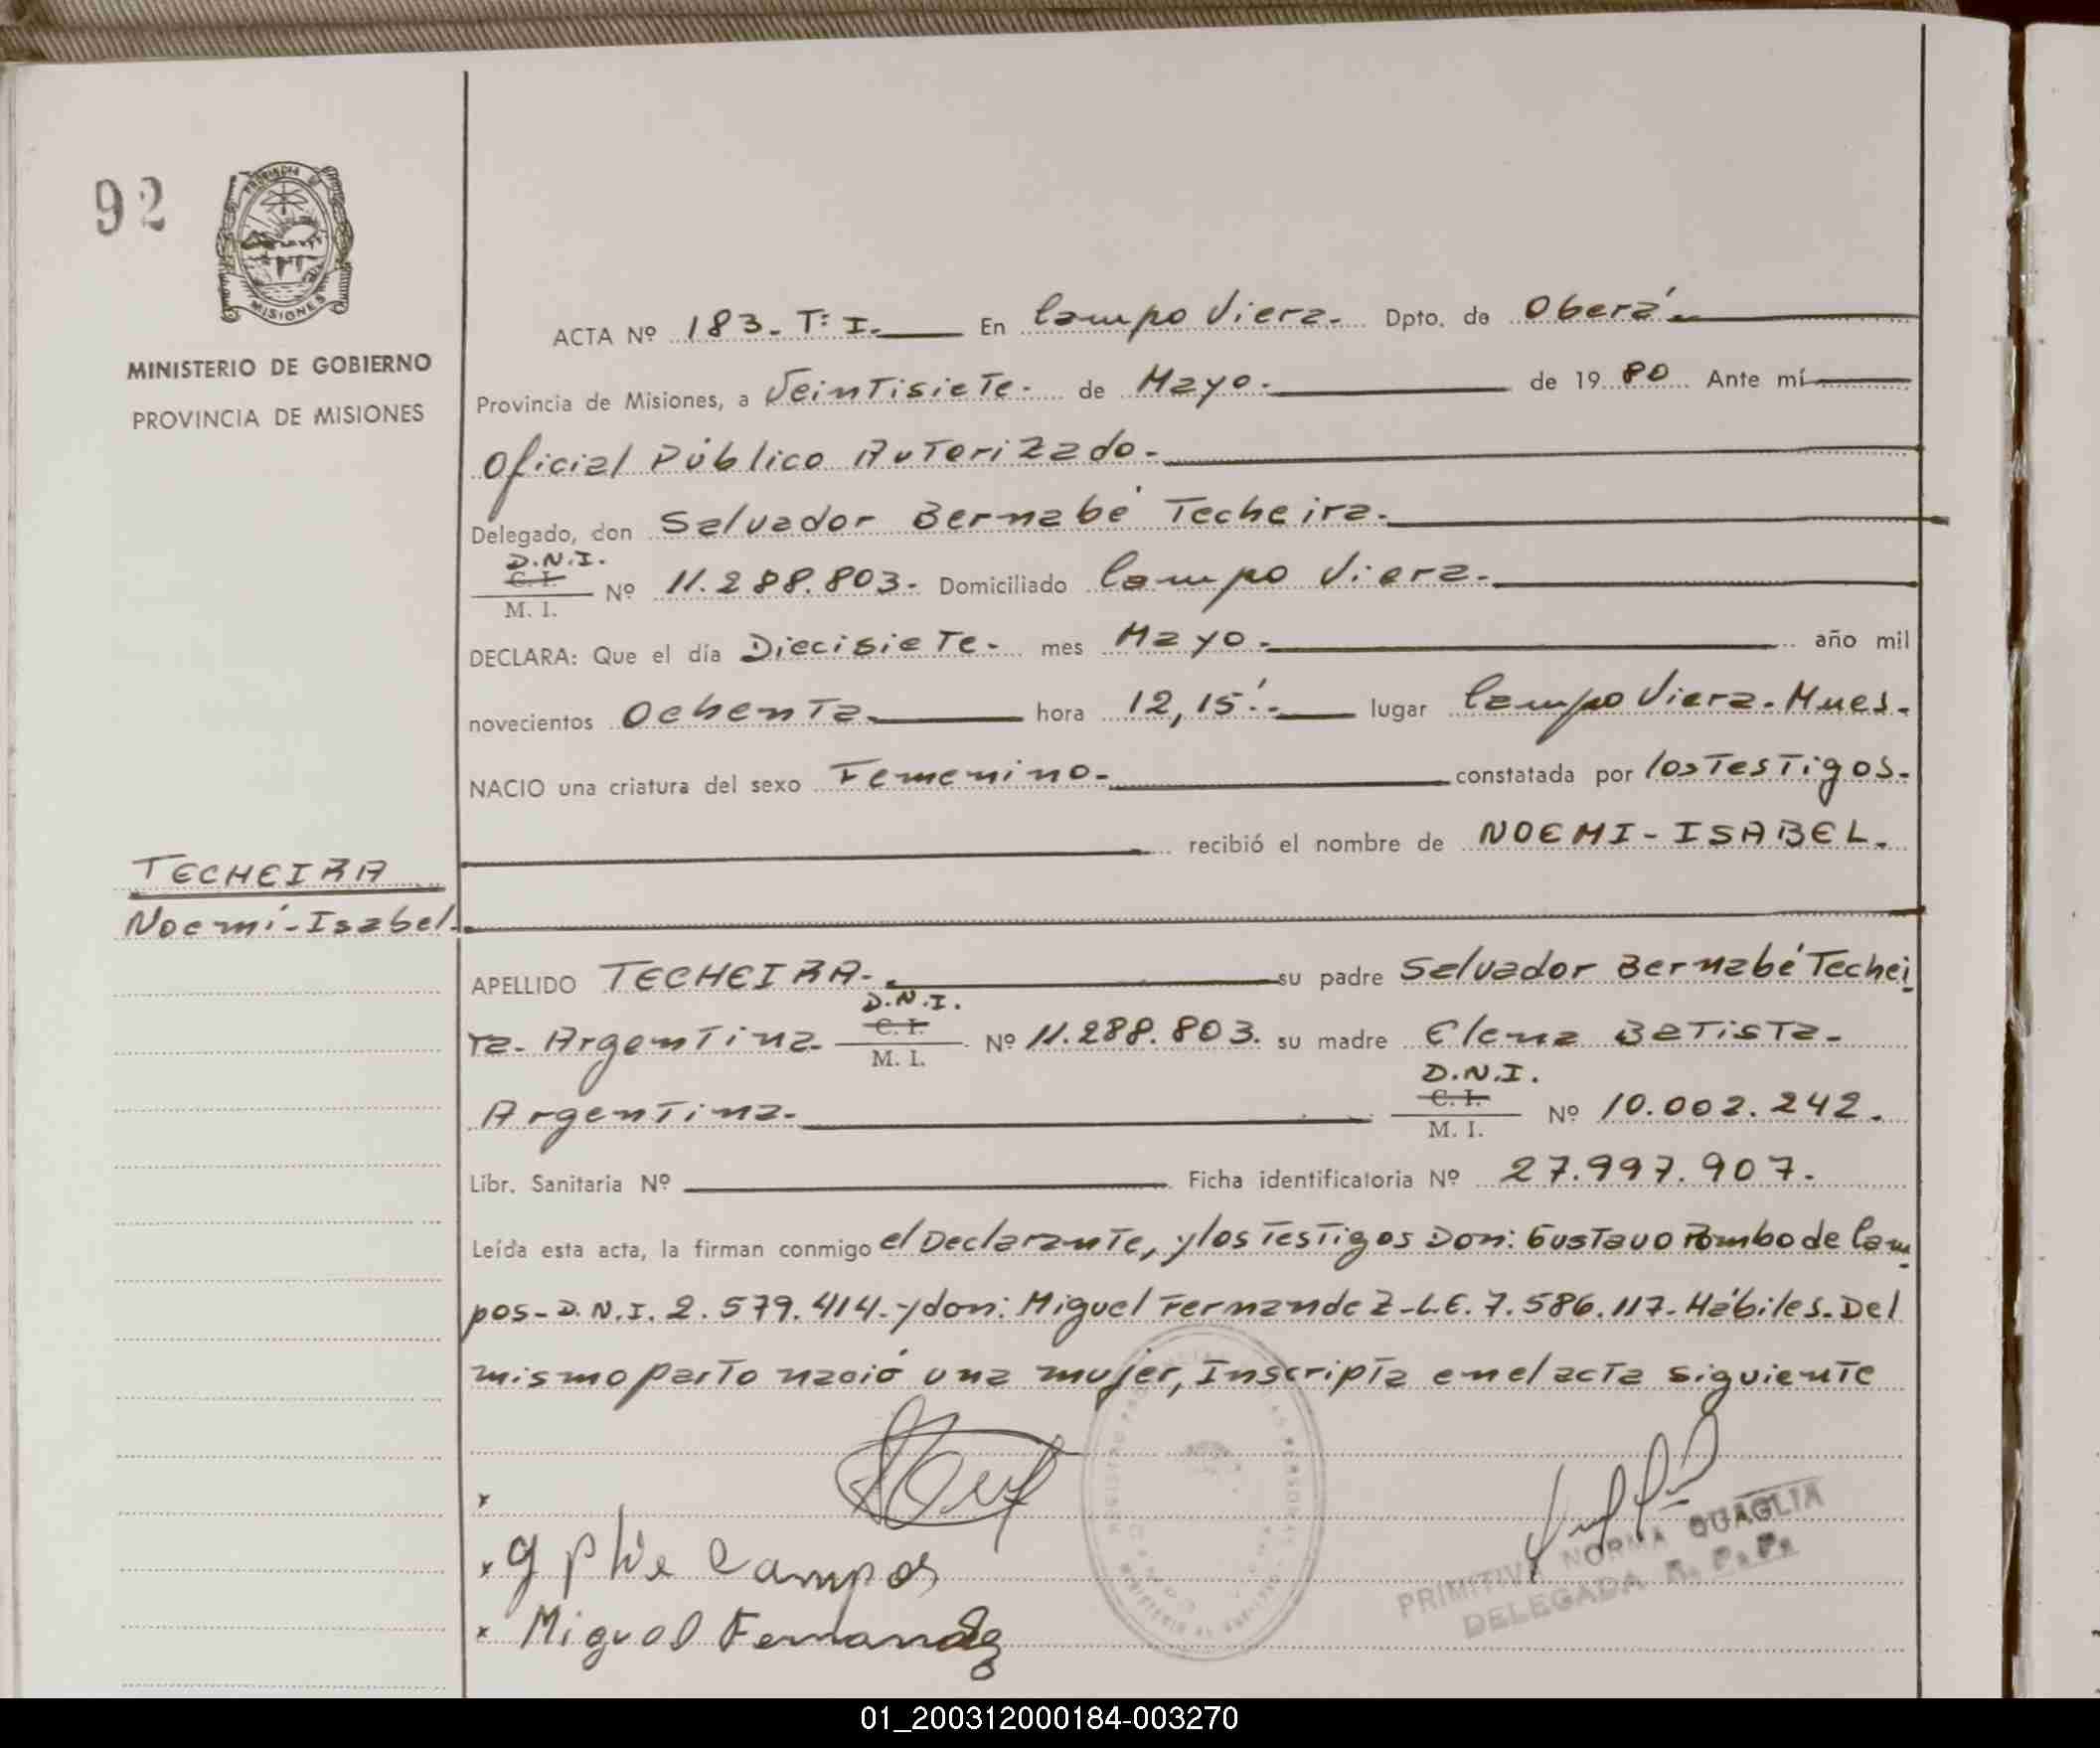 92
PROVINCIA DE
MISIONES
MINISTERIO DE GOBIERNO
PROVINCIA DE MISIONES
ACTA Nº 183. Tº I. En Campo Viera. Dpto. de Oberá.
Provincia de Misiones, a Veintisiete. de Mayo. de 1980 Ante mí
Oficial Público Autorizado.
Delegado, don Salvador Bernabé Techeira.
D.N.I.
C. I.
M. I.
Nº 11.288.803. Domiciliado Campo Viera.
DECLARA: Que el día Diecisiete. mes Mayo. año mil
novecientos Ochenta. hora 12,15'. lugar Campo Viera. Mnes.
NACIO una criatura del sexo Femenino. constatada por los Testigos.
recibió el nombre de NOEMI-ISABEL.
TECHEIRA
Noemí-Isabel.
APELLIDO TECHEIRA. su padre Salvador Bernabé Techei
D.N.I.
ra. Argentina. C. I. Nº 11.288.803. su madre Elena Batista.
M. I.
D.N.I.
Argentina. C. I. Nº 10.002.242.
M. I.
Libr. Sanitaria Nº Ficha identificatoria Nº 27.997.907.
Leída esta acta, la firman conmigo el Declarante, y los Testigos Don: Gustavo Pombo de Cam
pos- D.N.I. 2.579.414.- y don: Miguel Fernandez-L.E. 7.586.117. Hábiles. Del
mismo parto nació una mujer, Inscripta en el acta siguiente
x
x G Campos
x Miguel Fernandez
PRIMITIVA NORMA QUAGLIA
DELEGADA R. P. P.
01_200312000184-003270